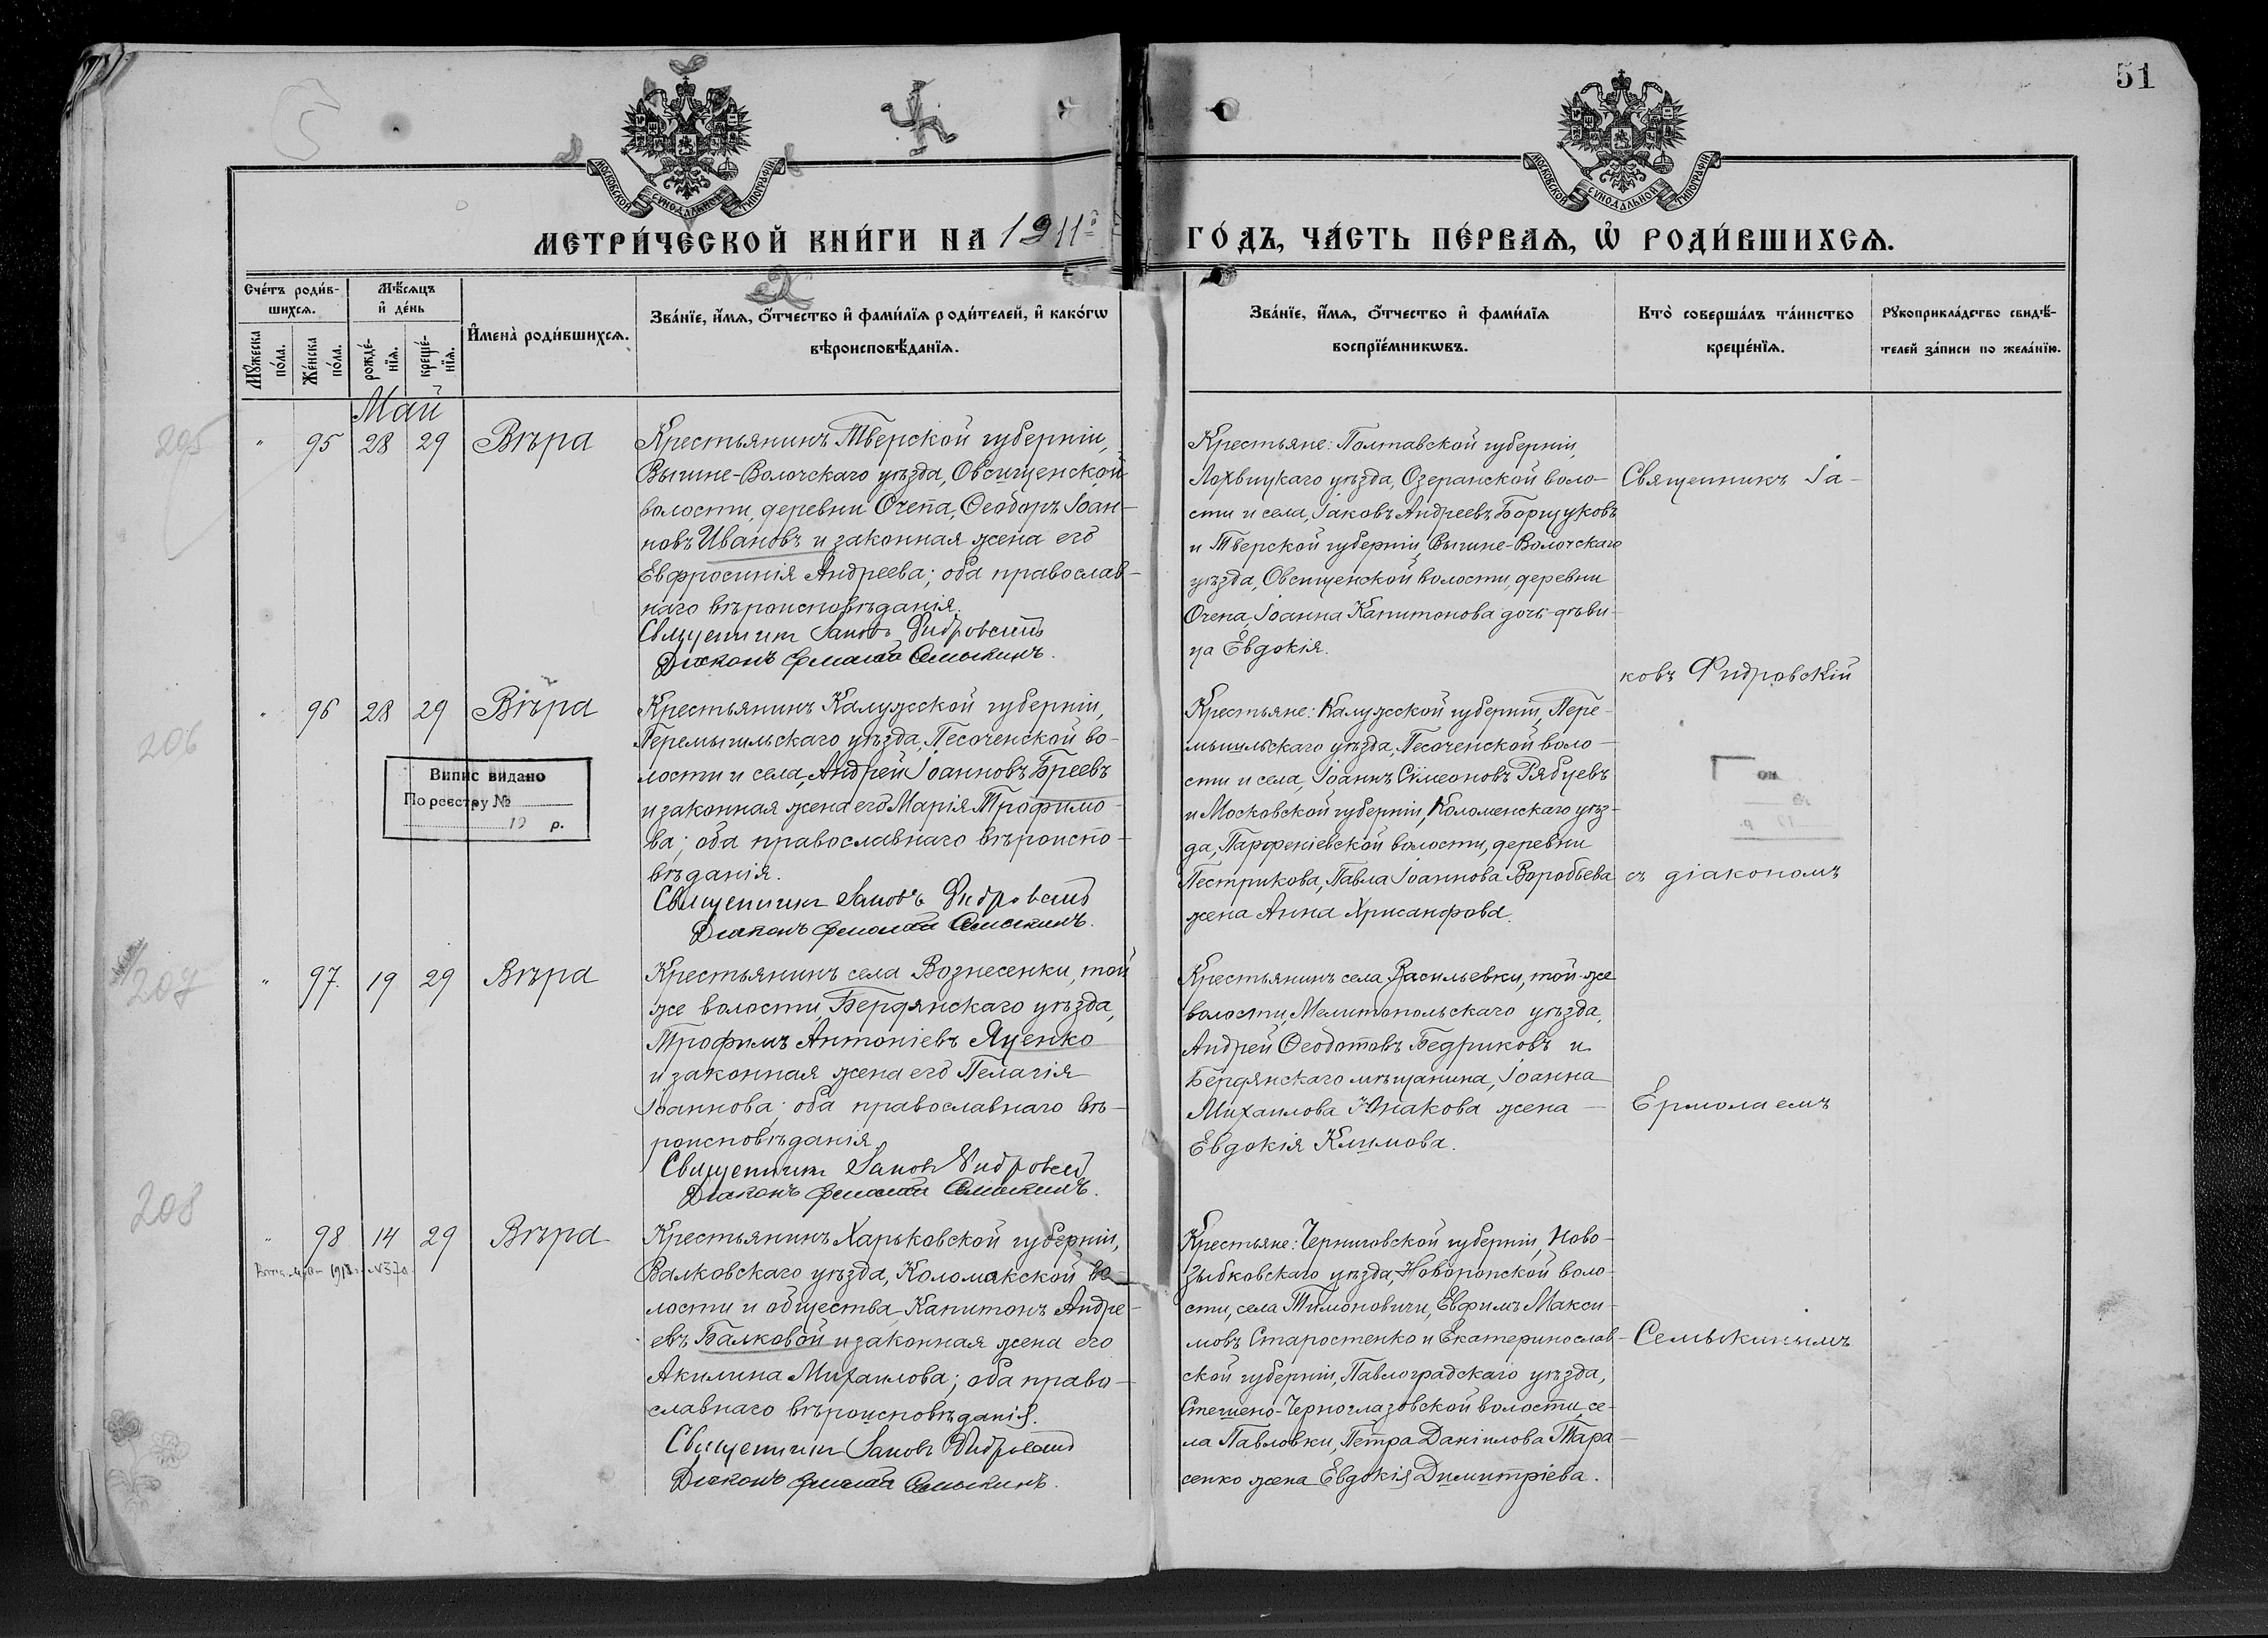 51
МОСКОВСКОЙ СУНОДАЛЬНОЙ ТИПОГРАФІИ
МОСКОВСКОЙ СУНОДАЛЬНОЙ ТИПОГРАФІИ
МЕТРИ́ЧЕСКОЙ КНИ́ГИ НА 1911
ГО́ДЪ, ЧА́СТЬ ПЕ́РВАѦ, Ѡ РОДИ́ВШИХСѦ.
Сче́тъ роди́в-
шихсѧ.
Мꙋ́жеска по́ла.
Же́нска по́ла.
Мѣ́сѧцъ
и҆ де́нь
рожде́-
нїѧ.
креще́-
нїѧ.
И҆мена̀ роди́вшихсѧ.
Зва́нїе, и҆́мѧ, ѻ҆́тчество и҆ фами́лїѧ роди́телей, и҆ како́гѡ
вѣроисповѣ́данїѧ.
Зва́нїе, и҆́мѧ, ѻ҆́тчество и҆ фами́лїѧ
воспрїе́мникѡвъ.
Кто̀ соверша́лъ та́инство
креще́нїѧ.
Рꙋкоприкла́дство свидѣ́-
телей за́писи по жела́нїю.
Май
205
" 95 28 29 Вѣра
Крестьянинъ Тверской губерніи,
Вышне-Волочскаго уѣзда, Овсищенской
волости, деревни Очепа, Ѳеодоръ Іоан-
новъ Ивановъ и законная жена его
Евфросинія Андреева; оба православ-
наго вѣроисповѣданія.
Священникъ Іаковъ Фидровскій
Діаконъ Ермолай Семыкинъ.
Крестьяне: Полтавской губерніи,
Лохвицкаго уѣзда, Озерянской воло-
сти и села, Іаковъ Андреевъ Борщуковъ
и Тверской губерніи, Вышне-Волочскаго
уѣзда, Овсищенской волости, деревни
Очепа, Іоанна Капитонова дочь дѣви-
ца Евдокія.
Священникъ Іа-
ковъ Фидровскій
206
" 96 28 29 Вѣра
Випис видано
По реєстру №
19 р.
Крестьянинъ Калужской губерніи,
Перемышльскаго уѣзда, Песоченской во-
лости и села, Андрей Іоанновъ Бреевъ
и законная жена его Марія Трофимо-
ва; оба православнаго вѣроиспо-
вѣданія.
Священникъ Іаковъ Фидровскій
Діаконъ Ермолай Семыкинъ.
Крестьяне: Калужской губерніи, Пере-
мышльскаго уѣзда, Песоченской воло-
сти и села, Іоаннъ Сѵмеоновъ Рябцевъ
и Московской губерніи, Коломенскаго уѣз-
да, Парфеніевской волости, деревни
Пестрикова, Павла Іоаннова Воробьева
жена Анна Хрисанфова.
съ діакономъ
207
" 97. 19 29 Вѣра
Крестьянинъ села Вознесенки, той
же волости, Бердянскаго уѣзда,
Трофимъ Антоніевъ Яценко
и законная жена его Пелагія
Іоаннова; оба православнаго вѣ-
роисповѣданія
Священникъ Іаковъ Фидровскій
Діаконъ Ермолай Семыкинъ.
Крестьянинъ села Васильевки, той-же
волости, Мелитопольскаго уѣзда,
Андрей Ѳеодотовъ Бедриковъ и
Бердянскаго мѣщанина, Іоанна
Михаилова жена
Евдокія Климова.
Ермолаемъ
208
" 98 14 29 Вѣра
1918 №370
Крестьянинъ Харьковской губерніи,
Валковскаго уѣзда, Коломакской во-
лости и общества, Капитонъ Андре-
евъ Балковой и законная жена его
Акилина Михаилова; оба право-
славнаго вѣроисповѣданія.
Священникъ Іаковъ Фидровскій
Діаконъ Ермолай Семыкинъ.
Крестьяне: Черниговской губерніи, Ново-
зыбковскаго уѣзда, Новоропской воло-
сти, села Тимоновичи, Евфимъ Макси-
мовъ Старостенко и Екатеринослав-
ской губерніи, Павлоградскаго уѣзда,
Стешено-Черноглазовской волости, се-
ла Павловки, Петра Даніилова Тара-
сенко жена Евдокія Димитріева.
Семыкинымъ